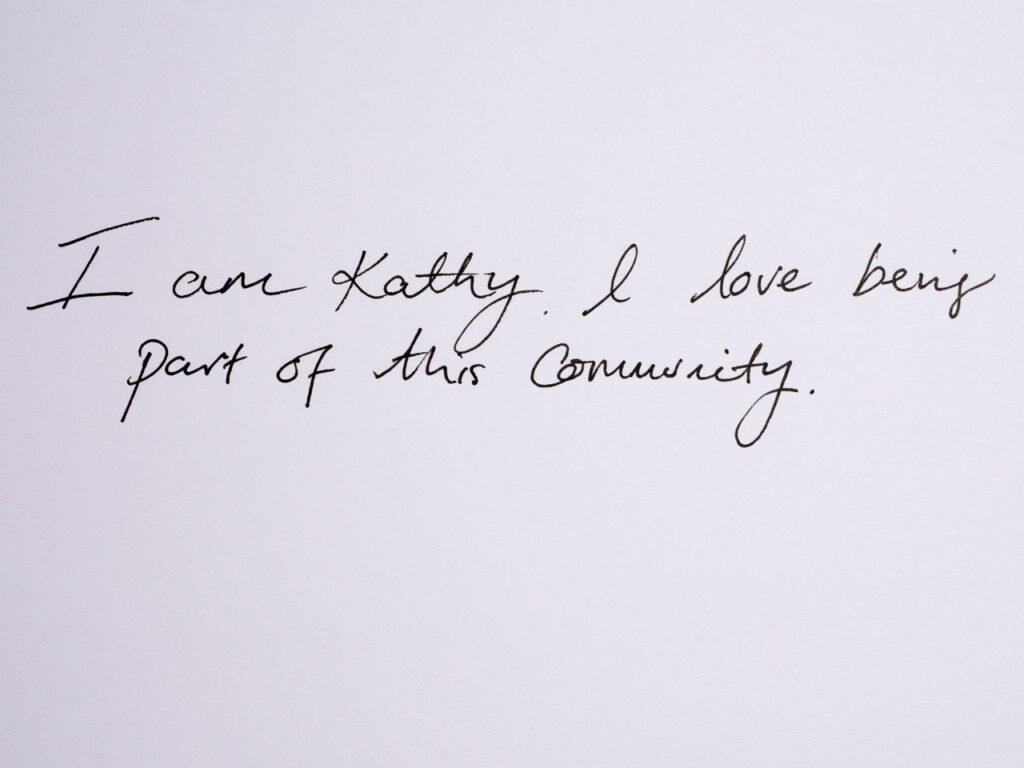 I am Kathy. I love being
part of this Community.